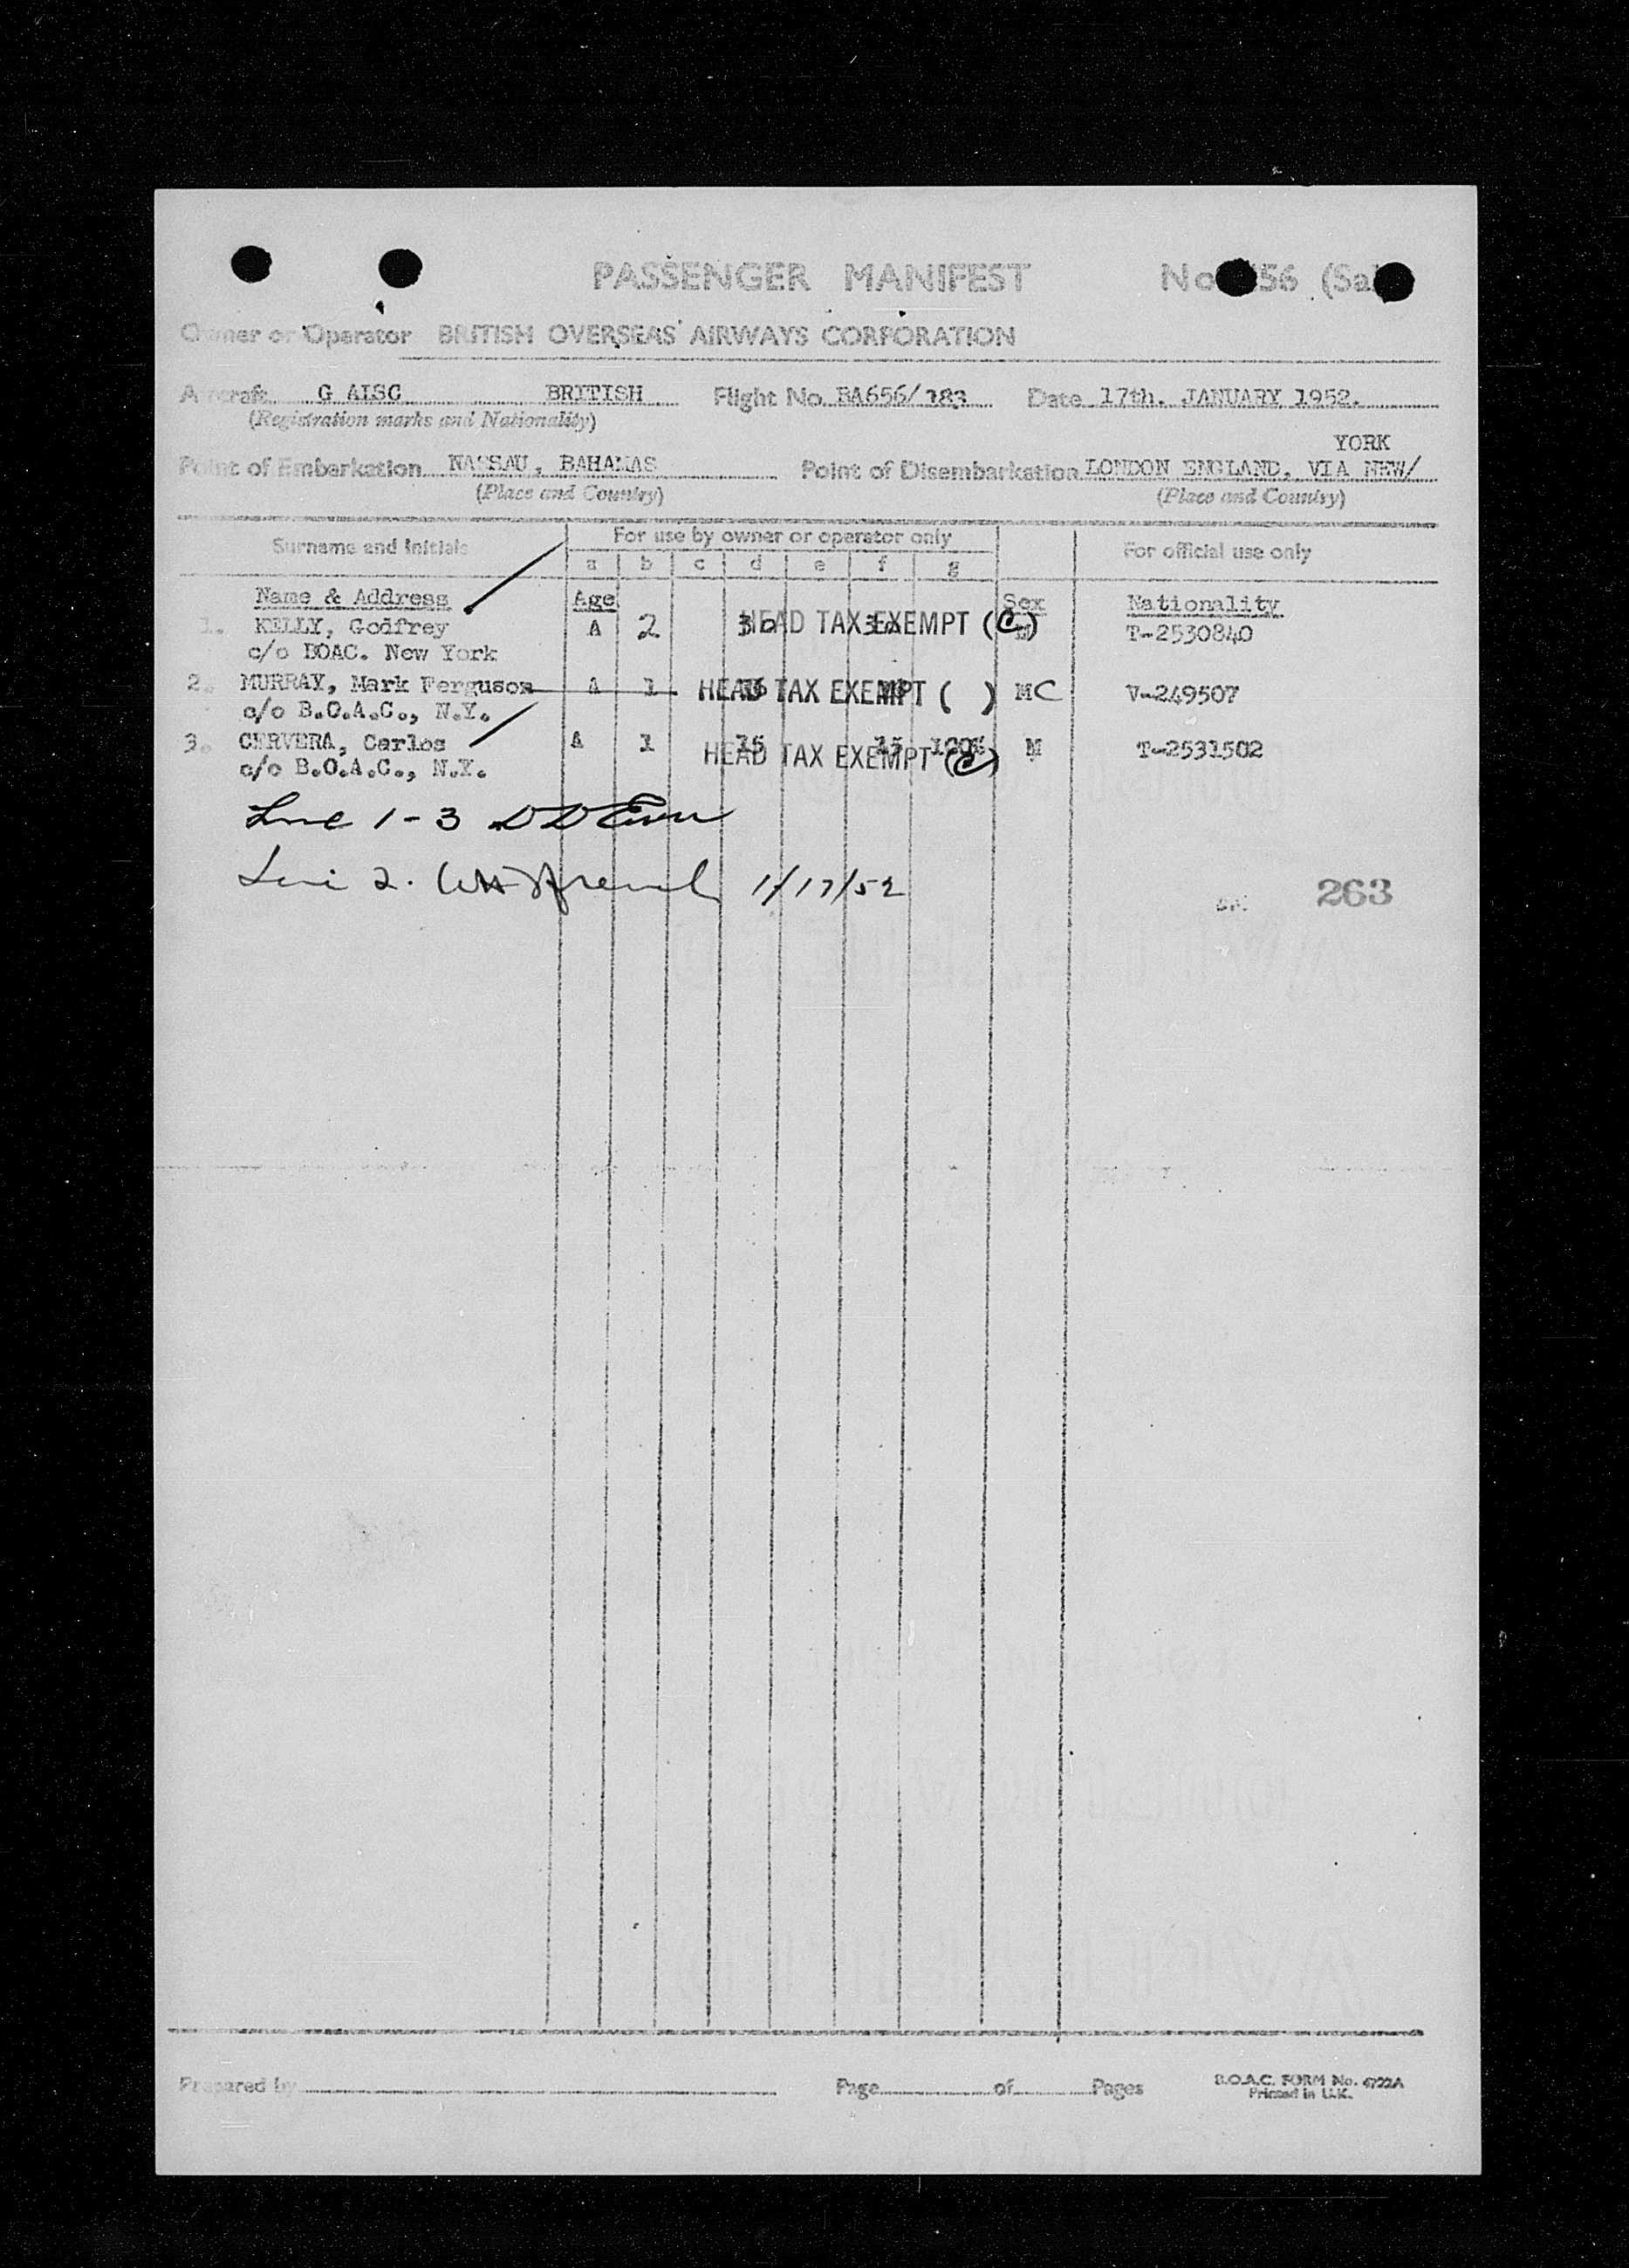 PASSENGER MANIFEST No 56 (Sa
Owner or Operator BRITISH OVERSEAS AIRWAYS CORPORATION
Aircraft G AISC BRITISH Flight No. BA656/183 Date 17th. JANUARY 1952.
(Registration marks and Nationality)
YORK
Point of Embarkation NASSAU, BAHAMAS Point of Disembarkation LONDON ENGLAND, VIA NEW/
(Place and Country) (Place and Country)
Surname and Initials For use by owner or operator only For official use only
a b c d e f g
Name & Address Age Sex Nationality
1. KELLY, Godfrey A 2 HEAD TAX EXEMPT (C) T-2530840
c/o BOAC. New York
2. MURRAY, Mark Ferguson A 1 HEAD TAX EXEMPT ( ) M C V-249507
c/o B.O.A.C., N.Y.
3. CERVERA, Carlos A 1 15 15 M T-2531502
HEAD TAX EXEMPT (C)
c/o B.O.A.C., N.Y.
Line 1-3
Line 2. 1/17/52
263
Prepared by Page of Pages B.O.A.C. FORM No. 6722A
Printed in U.K.